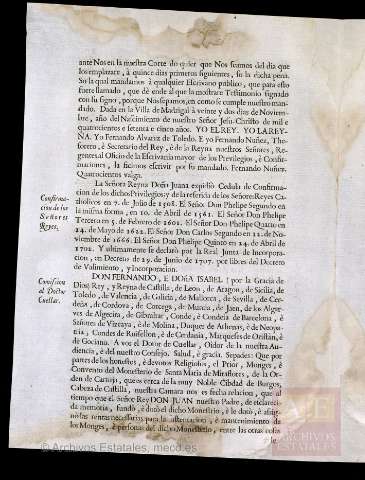 ante Nos en la nuestra Corte do quier que Nos seamos del dia que
los emplazare, à quince dias primeros siguientes, so la dicha pena.
So la qual mandamos à qualquier Escrivano publico, que para esto
fuere llamado, que dè ende al que la mostrare Testimonio signado
con su signo, porque Nos sepamos, en como se cumple nuestro man-
dado. Dada en la Villa de Madrigal à veinte y dos dias de Noviem-
bre, año del Nacimiento de nuestro Señor Jesu-Christo de mil è
quatrocientos e setenta e cinco años. YO EL REY. YO LA REY-
NA. Yo Fernando Alvarez de Toledo. E yo Fernando Nuñez, The-
sorero, è Secretario del Rey, è de la Reyna nuestros Señores, Re-
gentes al Oficio de la Escrivania mayor de los Privilegios, è Confir-
maciones, la ficimos escrivir por su mandado. Fernando Nuñez.
Quatrocientos valga.
Confirma-
cion de los
Señores
Reyes.
La Señora Reyna Doña Juana expidiò Cedula de Confirma-
cion de los dichos Privilegios; y de la referida de los Señores Reyes Ca-
tholicos en 7. de Julio de 1508. El Señor Don Phelipe Segundo en
la misma forma, en 10. de Abril de 1561. El Señor Don Phelipe
Tercero en 5. de Febrero de 1602. El Señor Don Phelipe Quarto en
24. de Mayo de 1622. El Señor Don Carlos Segundo en 12. de No-
viembre de 1666. El Señor Don Phelipe Quinto en 24. de Abril de
1702. Y ultimamente se declarò por la Real Junta de Incorpo-
racion, en Decreto de 29. de Junio de 1707. por libres del Decreto
de Valimiento, y incorporacion.
Comission
al Doctor
Cuellar.
DON FERNANDO, E DOÑA ISABEL: por la Gracia de
Dios, Rey, y Reyna de Castilla, de Leon, de Aragon, de Sicilia, de
Toledo, de Valencia, de Galicia, de Mallorca, de Sevilla, de Cer-
deña, de Cordova, de Corcega, de Murcia, de Jaen, de los Algar-
ves, de Algecira, de Gibraltar, Conde, è Condesa de Barcelona, è
Señores de Vizcaya, è de Molina, Duques de Athenas, è de Neopa-
tria, Condes de Ruisellon, è de Cerdania, Marqueses de Oristàn, è
de Gociano. A vos el Dotor de Cuellar, Oidor de la nuestra Au-
diencia, è del nuestro Consejo. Salud, è gracia. Sepades: Que por
partes de los honestos, è devotos Religiosos, el Prior, Monges, è
Convento del Monesterio de Santa Maria de Miraflores, de la Or-
den de Cartujo, que es cerca de la muy Noble Cibdad de Burgos,
Cabeza de Castilla, nuestra Camara nos es fecha relacion, que al
tiempo que el Señor Rey DON JUAN nuestro Padre, de esclareci-
da memoria, fundò, è dotò el dicho Monesterio, è le dotò, è asig-
nò las rentas necesarias para la sustentacion, è mantenimiento de
los Monges, è personas del dicho Monesterio, entre las otras cosas
le
© Archivos Estatales, mecd.es
ARCHIVOS
ESTATALES